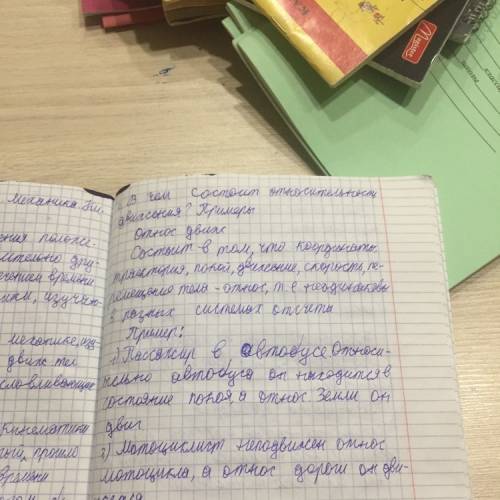 Механика. Ки.
ения положе-
ительно дру-
ечением времени
механике, изу
движ тел
словливающие
Кинематики
прошло
времени
В чем состоит относительность
движения? Примеры
Относ движ
Состоит в том, что координаты
трактория, покой, движение, скорость, пе-
ремещение тела - относ, т.е неодинаковы
в разных системах отсчёта
Пример:
1) Пассажир в автобусе относи-
тельно автобуса он находится в
состояние покоя а относ Земли он
движ.
2) Мотоциклист неподвижен относ
мотоцикла, а относ дороги он дви-